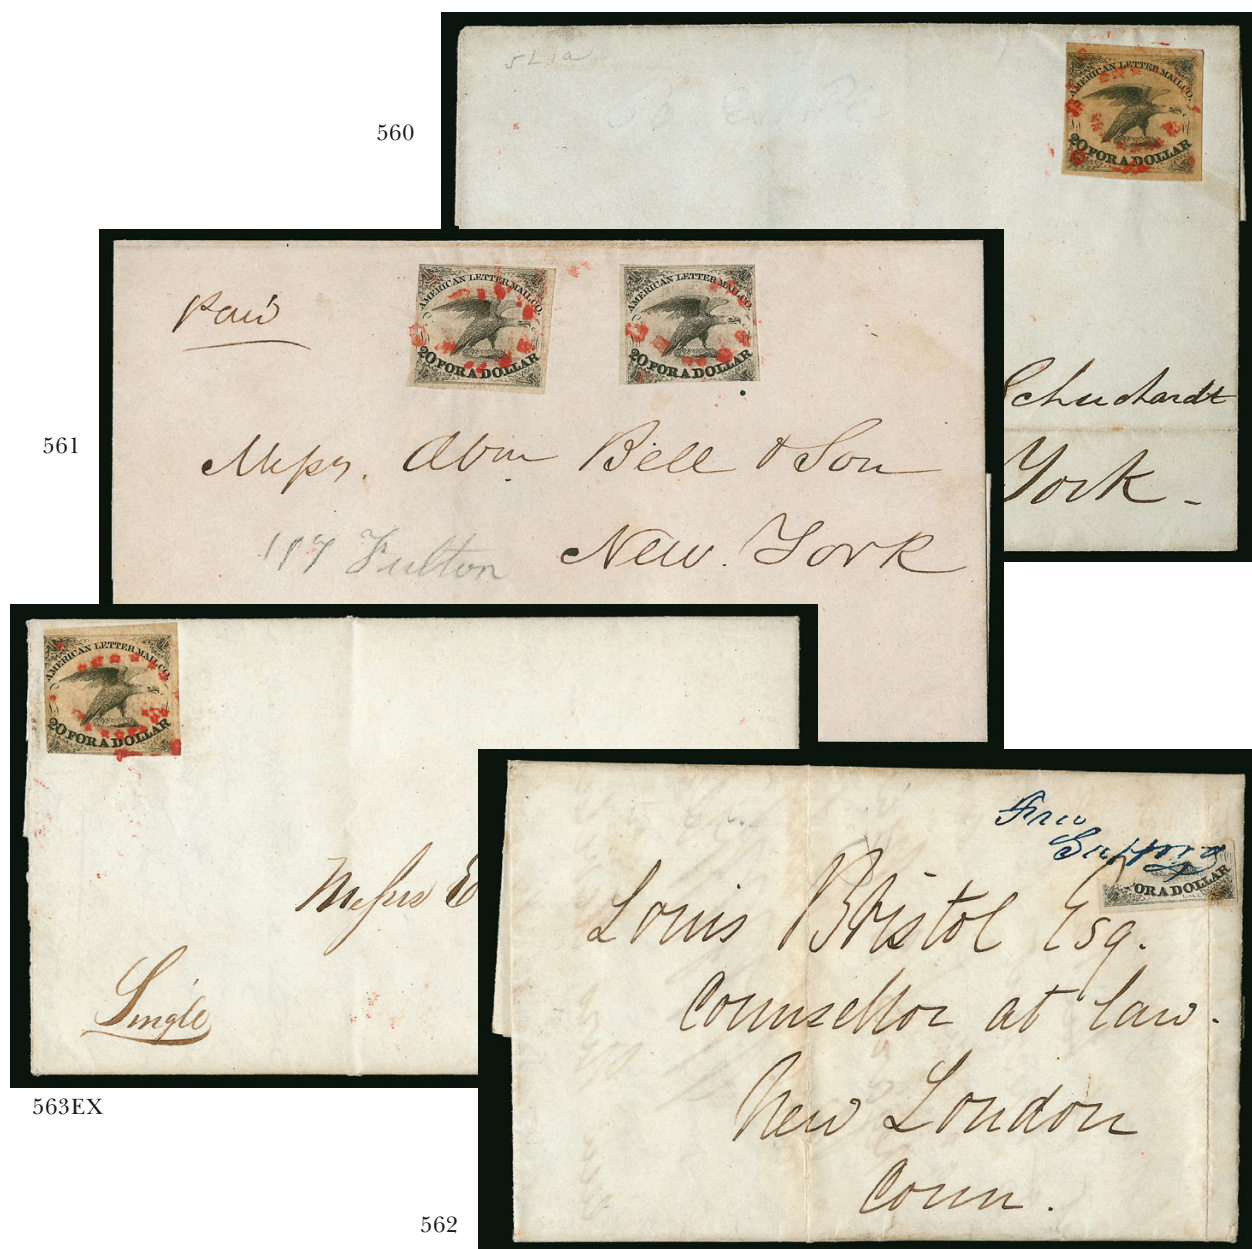 560
5L1a
AMERICAN LETTER MAIL CO.
20 FOR A DOLLAR
Schuchardt
York -
561
Paid
AMERICAN LETTER MAIL CO.
20 FOR A DOLLAR
AMERICAN LETTER MAIL CO.
20 FOR A DOLLAR
Messrs. Abm Bell & Son
New York
Fulton
AMERICAN LETTER MAIL CO.
20 FOR A DOLLAR
Messrs E
Single
563EX
Free
OR A DOLLAR
Louis Bristol Esq.
Counsellor at Law.
New London
Conn.
562